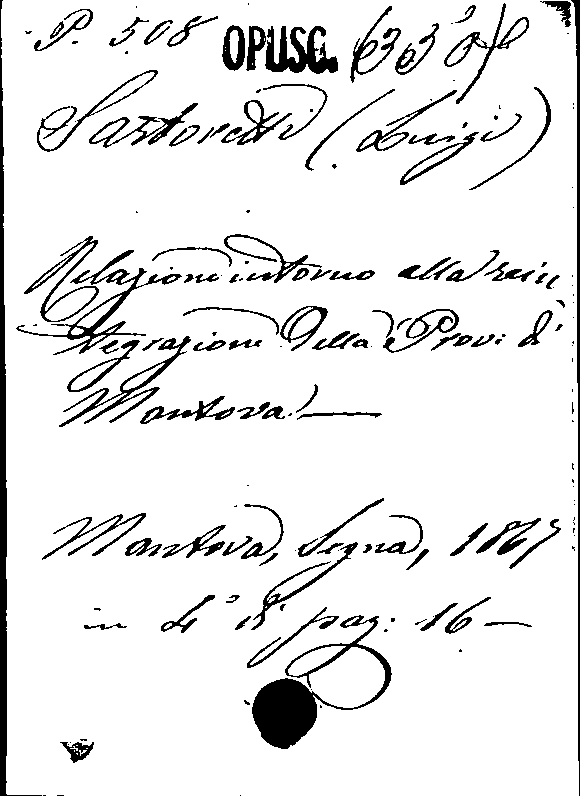 P. 508 OPUSC. (633
Sartoretti (Luigi)
Relazione intorno alla rein
tegrazione della Prov: di
Mantova. —
Mantova, Segna, 1867
in 4° di pag: 16 —